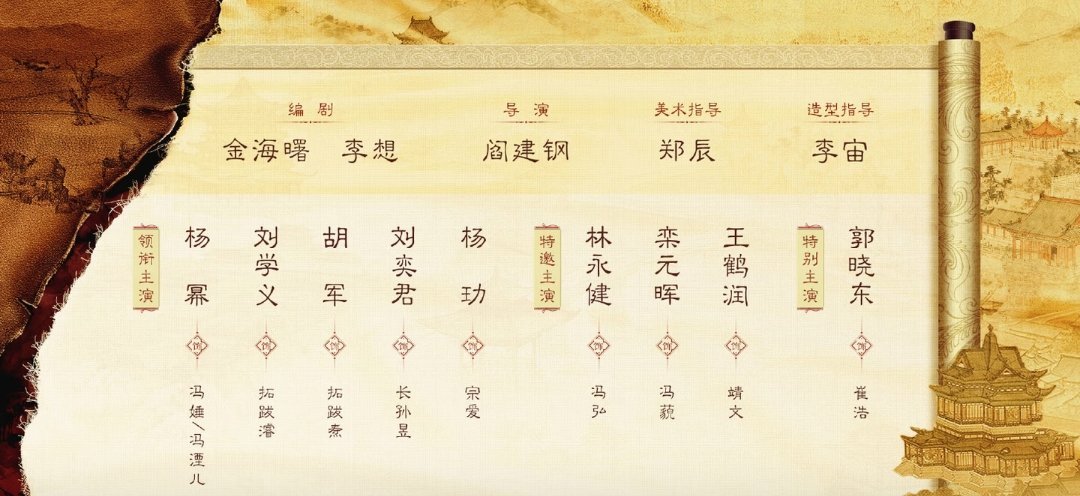 编剧
金海曙 李想
导演
阎建钢
美术指导
郑辰
造型指导
李宙
领衔主演
杨幂
饰
冯娷/冯湮儿
刘学义
饰
拓跋濬
胡军
饰
拓跋焘
刘奕君
饰
长孙昱
杨玏
饰
宗爱
特邀主演
林永健
饰
冯弘
栾元晖
饰
冯藐
王鹤润
饰
靖文
特别主演
郭晓东
饰
崔浩